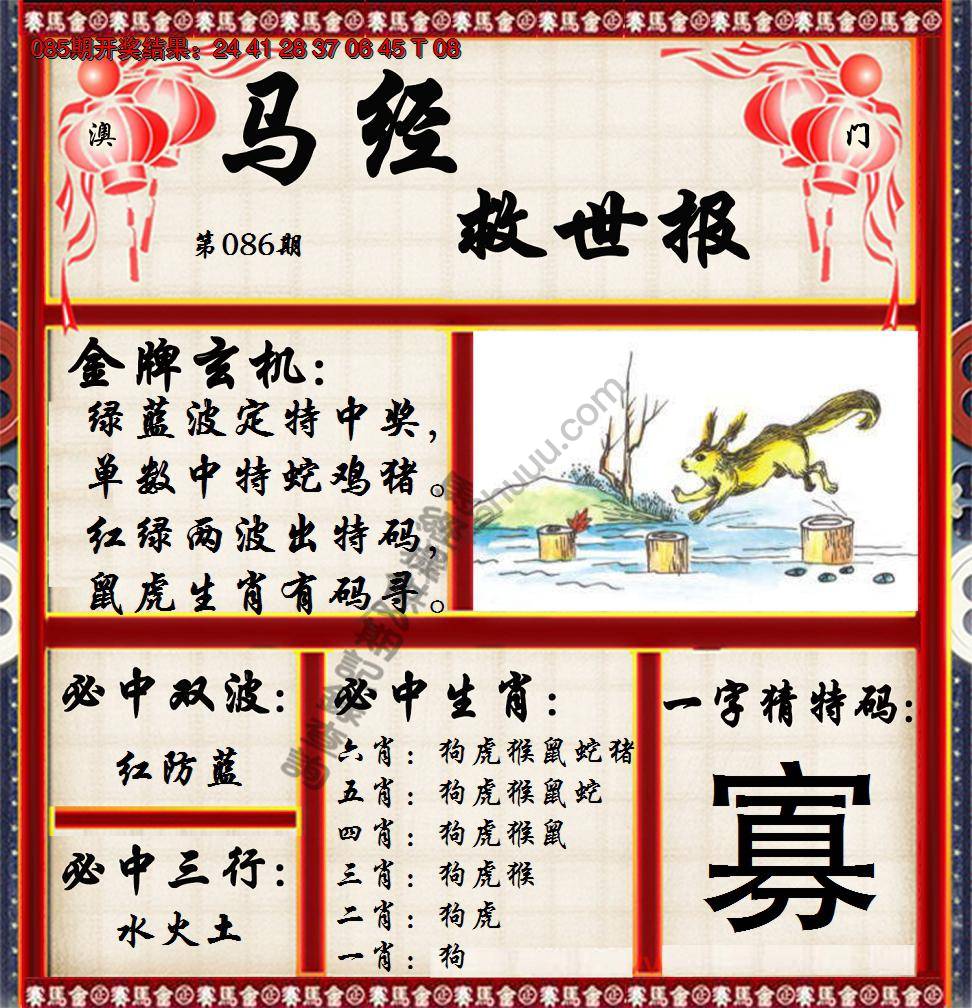 085期开奖结果：24 41 28 37 06 45 T 08
澳
门
马经
救世报
第086期
金牌玄机：
绿蓝波定特中奖，
单数中特蛇鸡猪。
红绿两波出特码，
鼠虎生肖有码寻。
必中双波：
红防蓝
必中三行：
水火土
必中生肖：
六肖：狗虎猴鼠蛇猪
五肖：狗虎猴鼠蛇
四肖：狗虎猴鼠
三肖：狗虎猴
二肖：狗虎
一肖：狗
一字猜特码：
寡